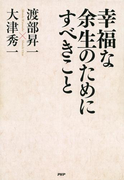 幸福な
余生のために
すべきこと
渡部昇一
大津秀一
PHP